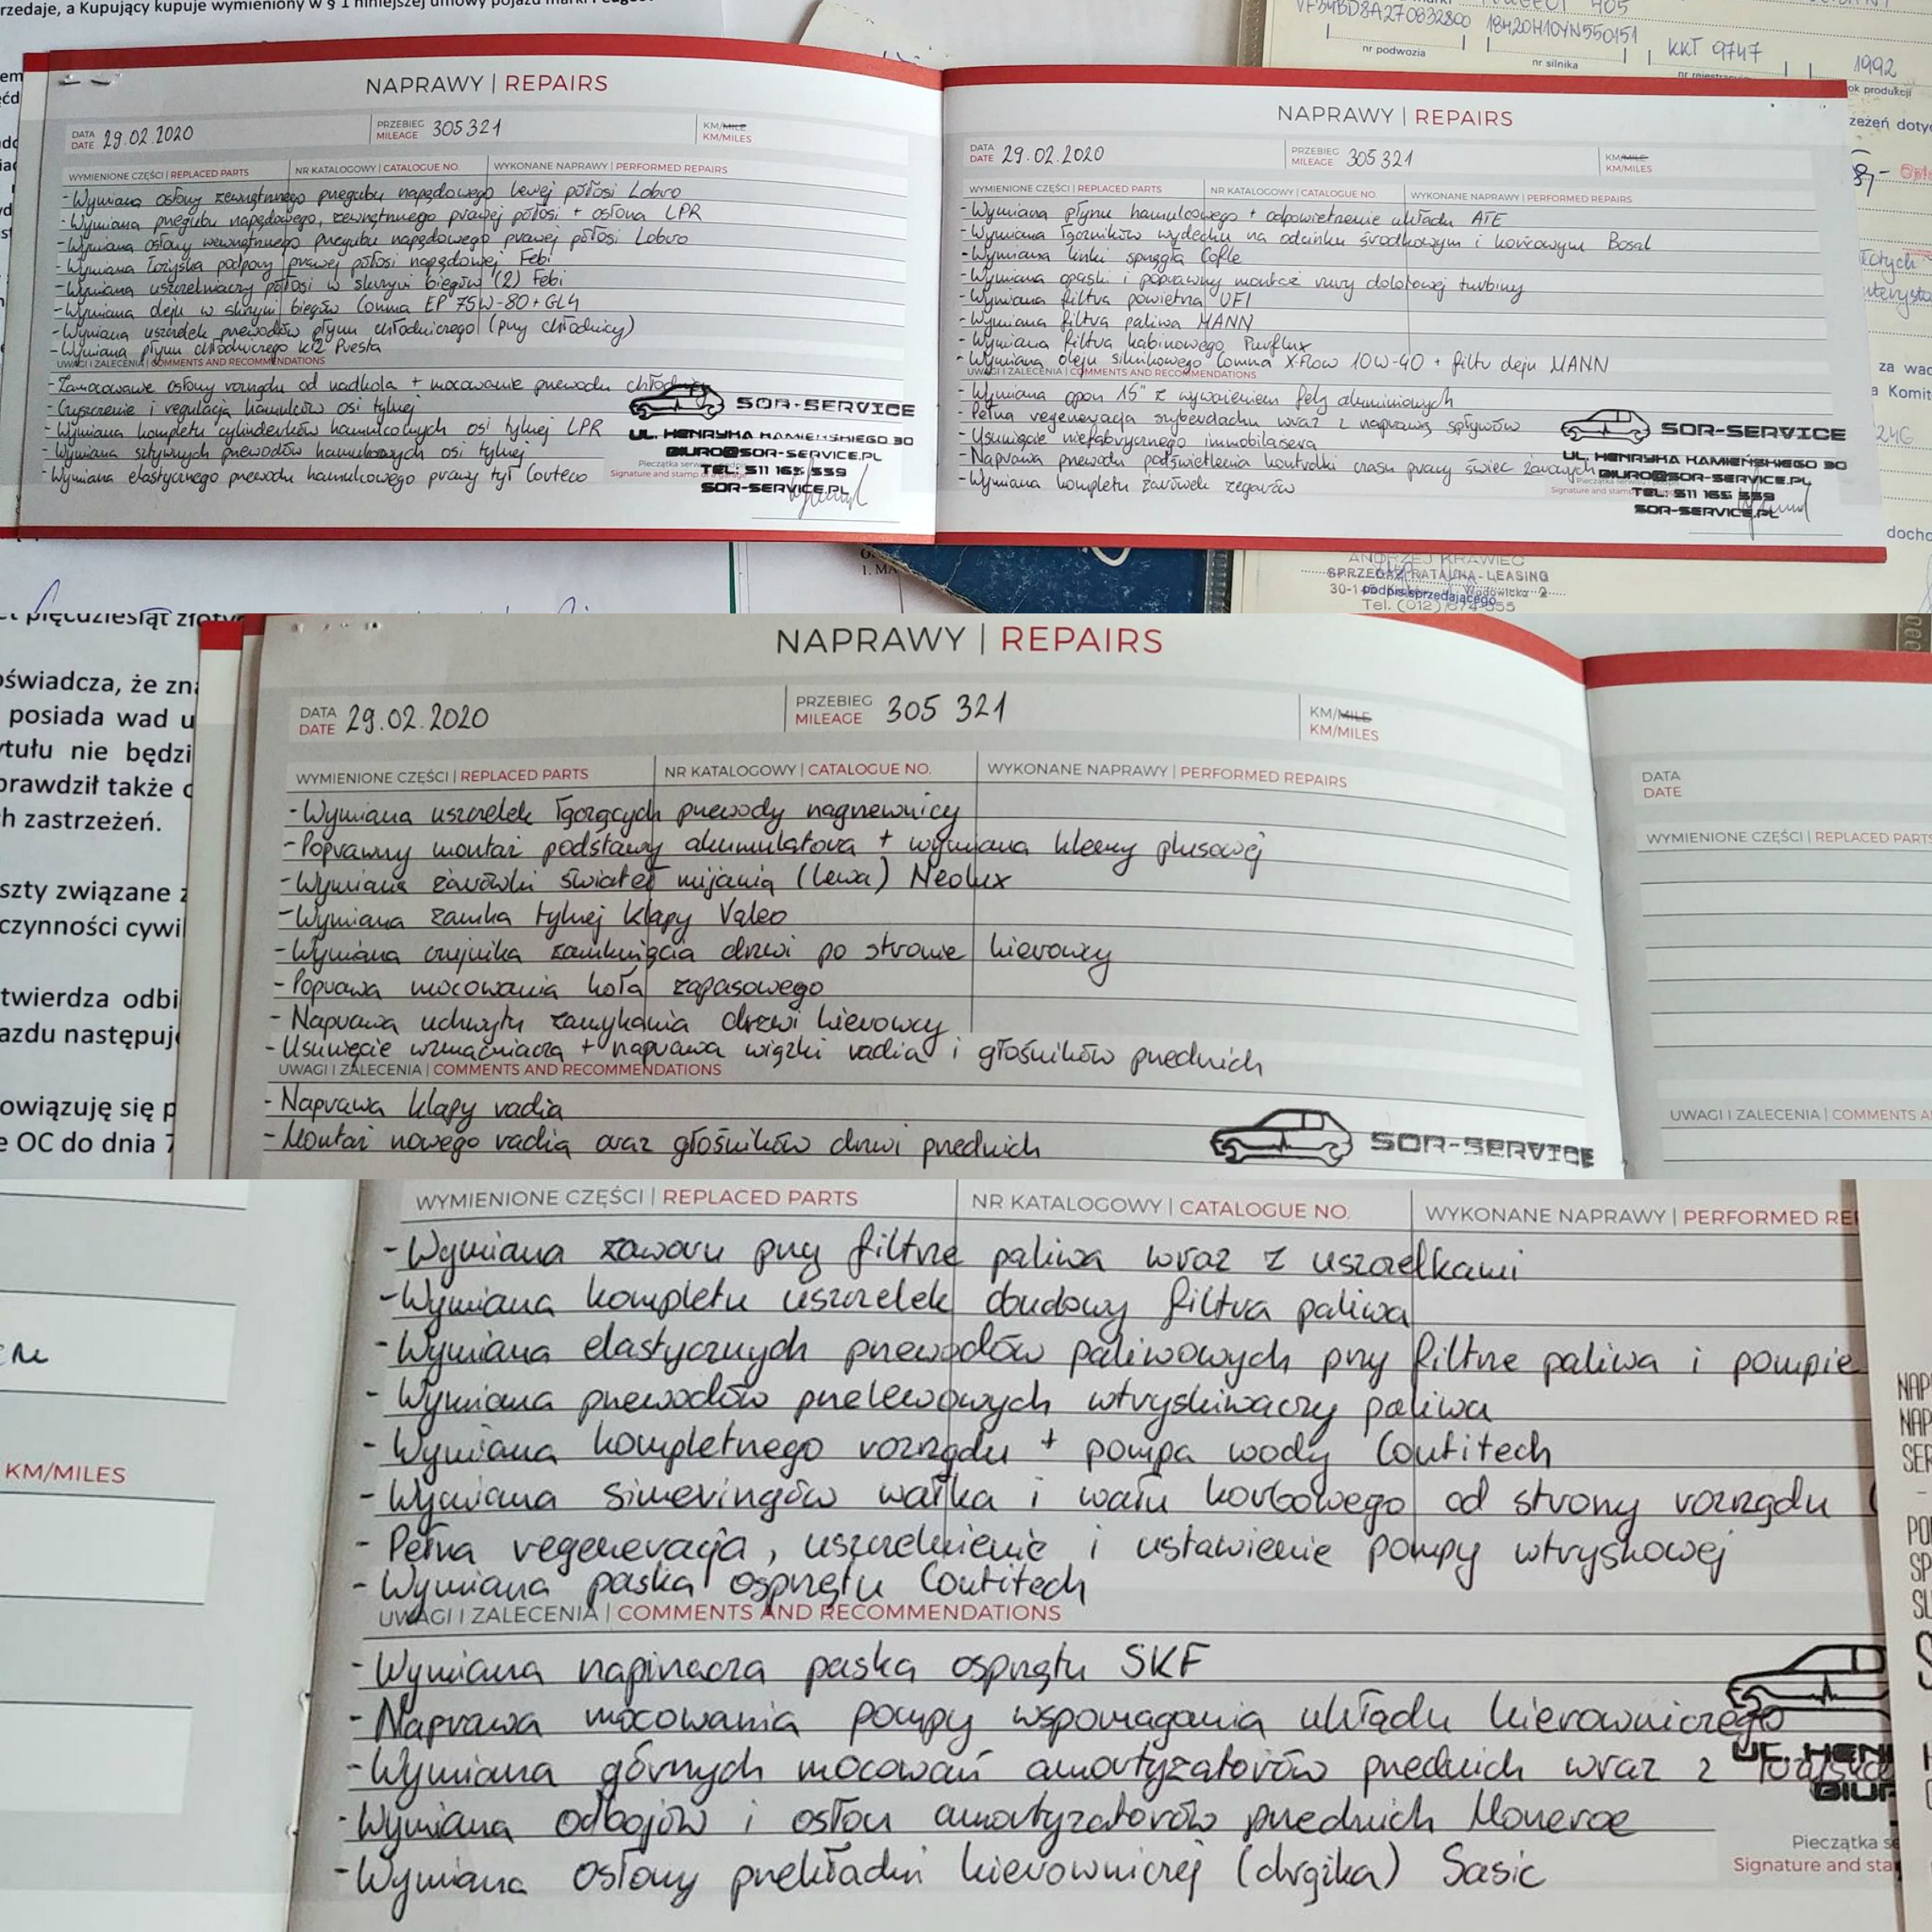 rzedaje, a Kupujący kupuje wymieniony w § 1 niniejszej umowy pojazd marki Peugeot
VF34BD8A270832800 18420H10YN550151
nr podwozia
nr silnika
KKT 9747
1992
ok produkcji
NAPRAWY | REPAIRS
DATA
DATE 29.02.2020
PRZEBIEG
MILEAGE 305321
KM/MILE
KM/MILES
WYMIENIONE CZĘŚCI | REPLACED PARTS NR KATALOGOWY | CATALOGUE NO. WYKONANE NAPRAWY | PERFORMED REPAIRS
- Wymiana osłony zewnętrznego przegubu napędowego lewej półosi Lobro
- Wymiana przegubu napędowego, zewnętrznego prawej półosi + osłona LPR
- Wymiana osłony wewnętrznego przegubu napędowego prawej półosi Lobro
- Wymiana łożyska podpory prawej półosi napędowej Febi
- Wymiana uszczelniaczy półosi w skrzyni biegów (2) Febi
- Wymiana oleju w skrzyni biegów Comma EP 75W-80 + GL4
- Wymiana uszczelek przewodów płynu chłodniczego (przy chłodnicy)
- Wymiana płynu chłodniczego k12 Presta
UWAGI I ZALECENIA | COMMENTS AND RECOMMENDATIONS
- Zamocowanie osłony rozrządu od nadkola + mocowanie przewodu chłodnicy
- Czyszczenie i regulacja hamulców osi tylnej
- Wymiana kompletu cylinderków hamulcowych osi tylnej LPR
- Wymiana sztywnych przewodów hamulcowych osi tylnej
- Wymiana elastycznego przewodu hamulcowego prawy tył Conteco
SOR-SERVICE
UL. HENRYKA KAMIEŃSKIEGO 30
BIURO@SOR-SERVICE.PL
TEL: 511 165 559
SOR-SERVICE.PL
NAPRAWY | REPAIRS
DATA
DATE 29.02.2020
PRZEBIEG
MILEAGE 305321
KM/MILE
KM/MILES
WYMIENIONE CZĘŚCI | REPLACED PARTS NR KATALOGOWY | CATALOGUE NO. WYKONANE NAPRAWY | PERFORMED REPAIRS
- Wymiana płynu hamulcowego + odpowietrzenie układu ATE
- Wymiana łączników wydechu na odcinku środkowym i końcowym Bosal
- Wymiana linki sprzęgła Cofle
- Wymiana opaski i poprawny montaż rury dolotowej turbiny
- Wymiana filtra powietrza UFI
- Wymiana filtra paliwa MANN
- Wymiana filtra kabinowego Purflux
- Wymiana oleju silnikowego Comma X-Flow 10W-40 + filtr oleju MANN
UWAGI I ZALECENIA | COMMENTS AND RECOMMENDATIONS
- Wymiana opon 15" z wyważeniem felg aluminiowych
- Pełna regeneracja szyberdachu wraz z naprawą spływów
- Usunięcie niefabrycznego immobilisera
- Naprawa przewodu podświetlenia kontrolki czasu pracy świec żarowych
- Wymiana kompletu żarówek zegarów
SOR-SERVICE
UL. HENRYKA KAMIEŃSKIEGO 30
BIURO@SOR-SERVICE.PL
TEL: 511 165 559
SOR-SERVICE.PL
ANDRZEJ KRAWIEC
SPRZEDAŻ RATALNA - LEASING
podpis sprzedającego
oświadcza, że
posiada wad
tytułu nie będzi
h zastrzeżeń.
szty związane
twierdza odbi
owiązuję się
e OC do dnia 7
NAPRAWY | REPAIRS
DATA
DATE 29.02.2020
PRZEBIEG
MILEAGE 305 321
KM/MILE
KM/MILES
WYMIENIONE CZĘŚCI | REPLACED PARTS NR KATALOGOWY | CATALOGUE NO. WYKONANE NAPRAWY | PERFORMED REPAIRS
- Wymiana uszczelek łączących przewody nagrzewnicy
- Poprawny montaż podstawy akumulatora + wymiana klemy plusowej
- Wymiana żarówki świateł mijania (lewa) Neolux
- Wymiana zamka tylnej klapy Valeo
- Wymiana czujnika zamknięcia drzwi po stronie kierowcy
- Poprawa mocowania koła zapasowego
- Naprawa uchwytu zamykania drzwi kierowcy
- Usunięcie wzmacniacza + naprawa wiązki radia i głośników przednich
UWAGI I ZALECENIA | COMMENTS AND RECOMMENDATIONS
- Naprawa klapy radia
- Montaż nowego radia oraz głośników drzwi przednich
SOR-SERVICE
DATA
DATE
WYMIENIONE CZĘŚCI | REPLACED PARTS
UWAGI I ZALECENIA | COMMENTS
KM/MILES
WYMIENIONE CZĘŚCI | REPLACED PARTS NR KATALOGOWY | CATALOGUE NO. WYKONANE NAPRAWY | PERFORMED RE
- Wymiana zaworu przy filtrze paliwa wraz z uszczelkami
- Wymiana kompletu uszczelek obudowy filtra paliwa
- Wymiana elastycznych przewodów paliwowych przy filtrze paliwa i pompie
- Wymiana przewodów przelewowych wtryskiwaczy paliwa
- Wymiana kompletnego rozrządu + pompa wody Contitech
- Wymiana simeringów wałka i wału korbowego od strony rozrządu (
- Pełna regeneracja, uszczelnienie i ustawienie pompy wtryskowej
- Wymiana paska osprzętu Contitech
UWAGI I ZALECENIA | COMMENTS AND RECOMMENDATIONS
- Wymiana napinacza paska osprzętu SKF
- Naprawa mocowania pompy wspomagania układu kierowniczego
- Wymiana górnych mocowań amortyzatorów przednich wraz z
- Wymiana odbojów i osłon amortyzatorów przednich Monroe
- Wymiana osłony przekładni kierowniczej (drążka) Sasic
UL. HEN
BIUR
Pieczątka se
Signature and sta